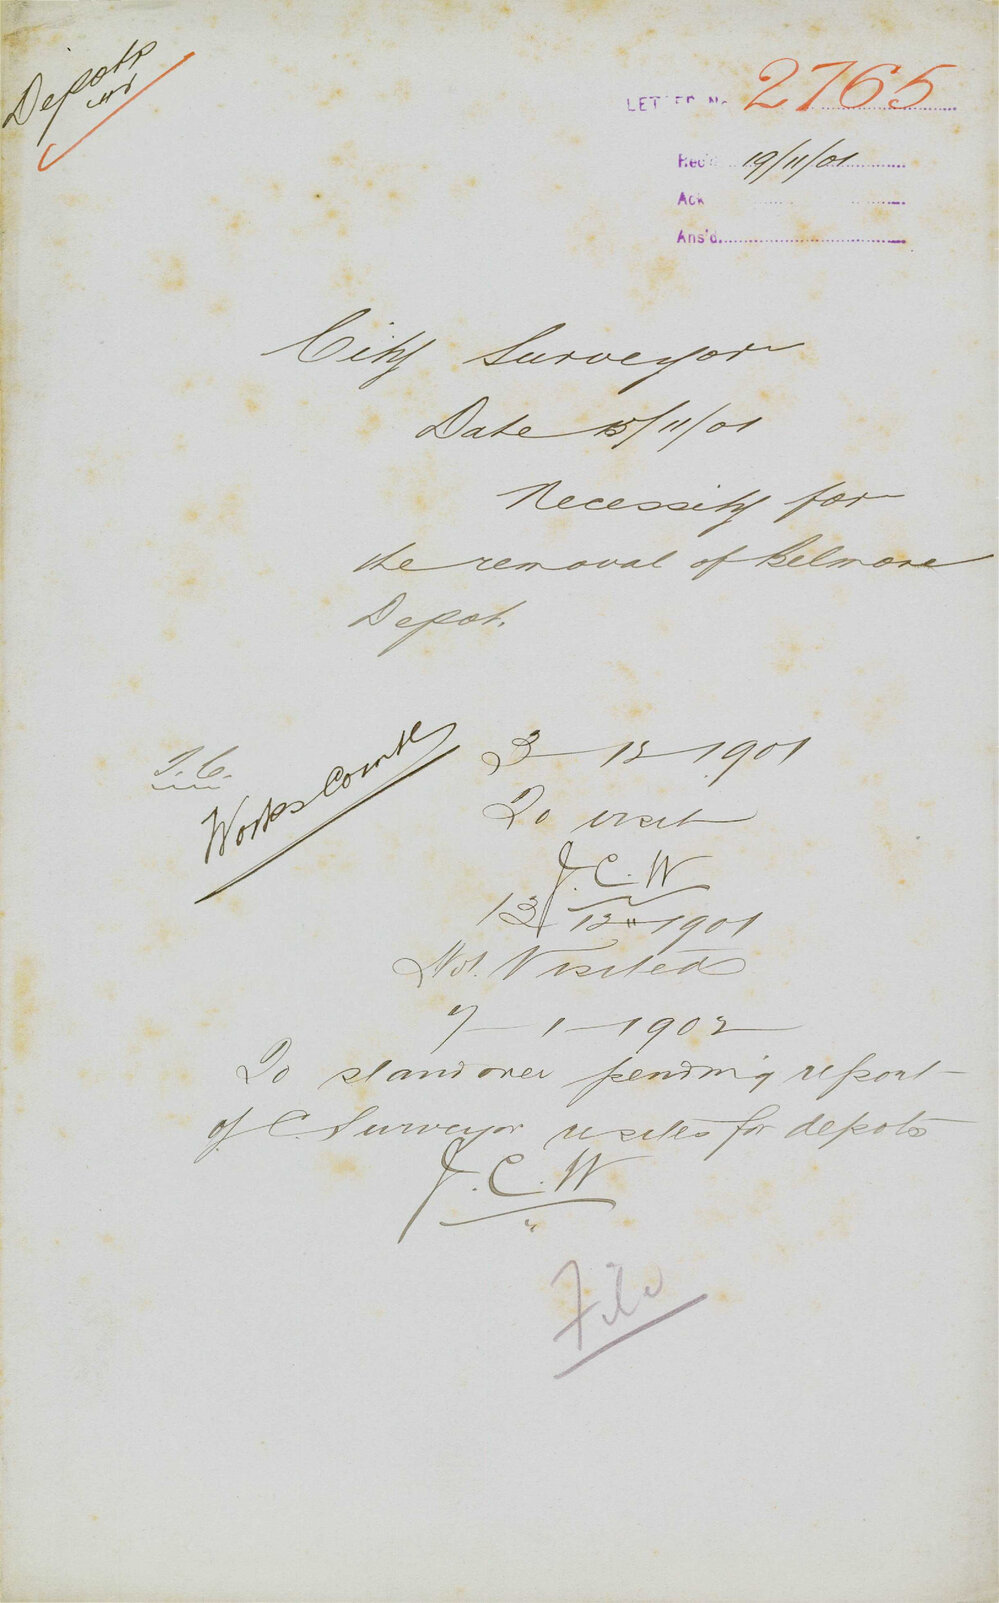 Depots
LETTER No 2765
Rec'd 19/11/01
Ack
Ans'd
City Surveyor
Date 15/11/01
Necessity for
the removal of Belmore
Depot.
T.C.
Works Comtte
3-12-1901
To visit
J.C.W
13-12-1901
Not Visited
7-1-1902
To stand over pending report
of C. Surveyor re sites for depots
J.C.W
File